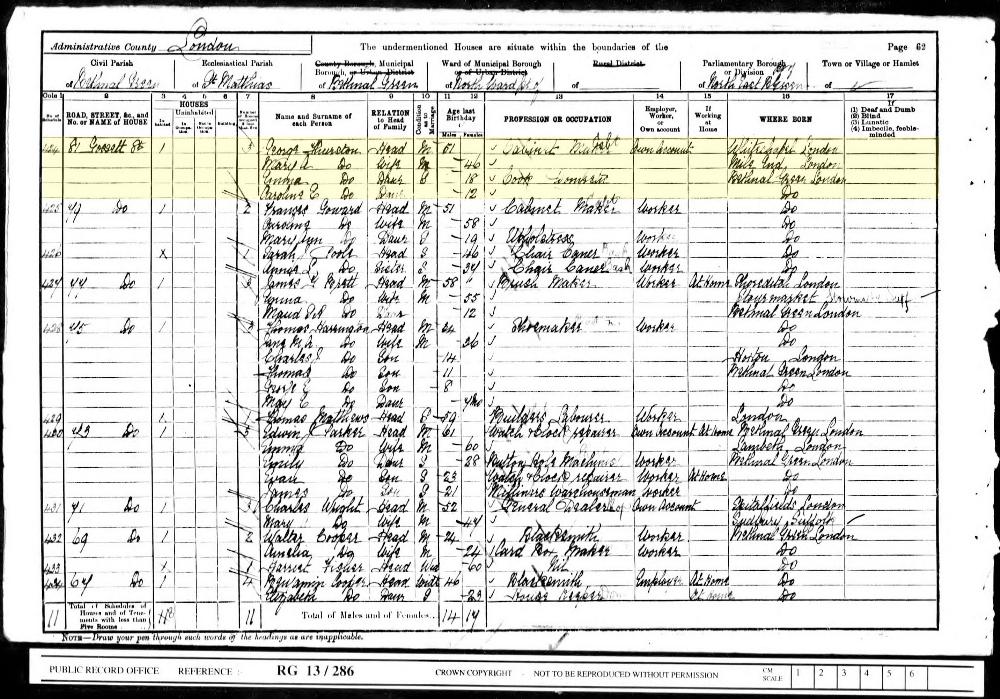 Administrative County London
The undermentioned Houses are situate within the boundaries of the
Page 62
Civil Parish
of Bethnal Green
Ecclesiastical Parish
of St. Matthias
County Borough, Municipal Borough, or Urban District
of Bethnal Green
Ward of Municipal Borough or of Urban District
of North Ward
Rural District
of
Parliamentary Borough or Division
of North East
Town or Village or Hamlet
of
Cols 1 2 3 4 5 6 7 8 9 10 11 12 13 14 15 16 17
No. of Schedule
ROAD, STREET, &c., and No. or NAME of HOUSE
HOUSES
Inhabited
Uninhabited
In Occup.
Not in Occup.
Building
Name and Surname of each Person
RELATION to Head of Family
Condition as to Marriage
Age last Birthday of
Males Females
PROFESSION OR OCCUPATION
Employer, Worker, or Own account
If Working at Home
WHERE BORN
If
(1) Deaf and Dumb
(2) Blind
(3) Lunatic
(4) Imbecile, feeble-minded
424 81 Gossett St 1 3 George Thurston Head M 51 Cabinet Maker Own account Whitechapel London
Mary A Do Wife M 46 Mile End London
Emma Do Daur S 18 Bethnal Green London
Caroline E Do Daur 12 Do
425 79 Do 1 2 Frances Goward Head M 51 Cabinet Maker Worker Do
Caroline Do Wife M 58 Do
Mary Ann Do Daur S 19 Upholstress Worker Do
426 x 1 Sarah Poole Head S 46 Chair Caner Worker Do
Do Sister S 34 Chair Caner Worker Do
427 77 Do 1 James Head M 58 Brush Maker Worker At Home Shoreditch London
Emma Do Wife M 55
Maud Do Daur 12 Bethnal Green London
428 75 Do 1 Thomas Harrington Head M 24 Shoemaker Worker Do
Jane M A Do Wife M 26 Do
Charles Do Son 14 Hoxton London
Thomas Do Son 11 Bethnal Green London
George E Do Son 8 Do
May E Do Daur Do
429 1 Thomas Matthews Head S 59 Builders Labourer Worker London
430 73 Do 1 Edwin J Parker Head M 61 Watch & Clock repairer Own account At Home Bethnal Green London
Emma Do Wife M 60 Lambeth London
Emily Do Daur S 28 Button Hole Machinist Worker Bethnal Green London
Do Son S 23 Watch & Clock repairer Worker At Home Do
James Do Son S 21 Milliners Warehouseman Worker Do
431 71 Do 1 3 Charles Wright Head M 52 General Dealer Own account Spitalfields London
Mary Do Wife M 47 Sudbury Suffolk
432 69 Do 1 2 Walter Cooper Head M 24 Blacksmith Worker Bethnal Green London
Amelia Do Wife M 24 Card Box Maker Worker Do
433 x 1 Harriet Fisher Head Wid 60 Nil Do
434 67 Do 1 4 Benjamin Cooper Head Widr 46 Blacksmith Employer At Home Do
Elizabeth Do Daur S 23 House Keeper At Home Do
11
Total of Schedules of Houses and of Tenements with less than Five Rooms
11
Total of Males and of Females... 14 17
NOTE—Draw your pen through such words of the headings as are inapplicable.
PUBLIC RECORD OFFICE REFERENCE :- RG 13 / 286 CROWN COPYRIGHT - NOT TO BE REPRODUCED WITHOUT PERMISSION CM SCALE 1 2 3 4 5 6